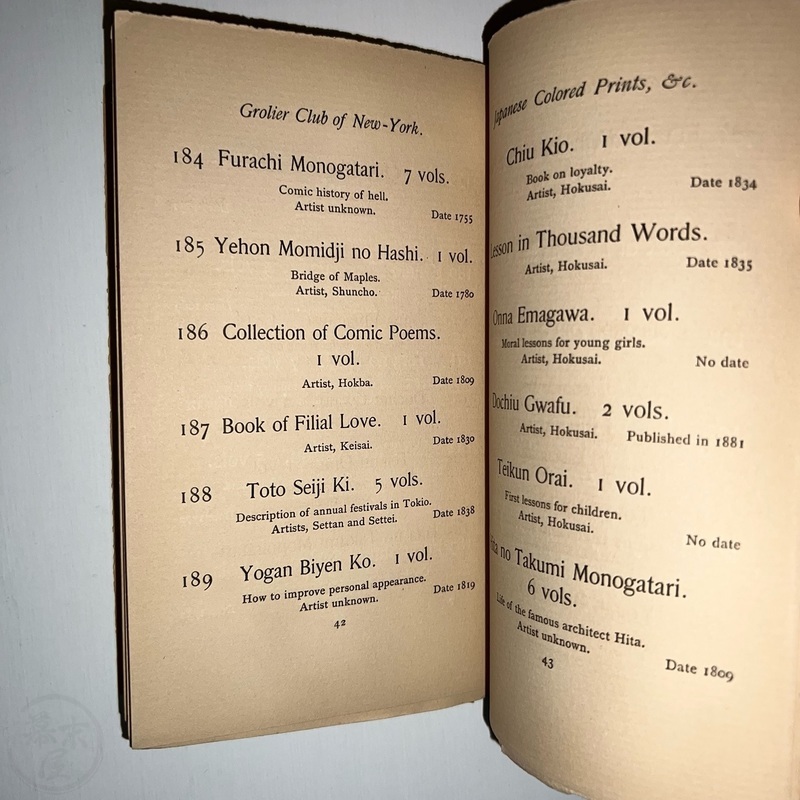 Grolier Club of New-York.
184 Furachi Monogatari. 7 vols.
Comic history of hell.
Artist unknown.
Date 1755
185 Yehon Momidji no Hashi. 1 vol.
Bridge of Maples.
Artist, Shuncho.
Date 1780
186 Collection of Comic Poems.
1 vol.
Artist, Hokba.
Date 1809
187 Book of Filial Love. 1 vol.
Artist, Keisai.
Date 1830
188 Toto Seiji Ki. 5 vols.
Description of annual festivals in Tokio.
Artists, Settan and Settei.
Date 1838
189 Yogan Biyen Ko. 1 vol.
How to improve personal appearance.
Artist unknown.
Date 1819
42
Japanese Colored Prints, &c.
Chiu Kio. 1 vol.
Book on loyalty.
Artist, Hokusai.
Date 1834
Lesson in Thousand Words.
Artist, Hokusai.
Date 1835
Onna Emagawa. 1 vol.
Moral lessons for young girls.
Artist, Hokusai.
No date
Dochiu Gwafu. 2 vols.
Artist, Hokusai.
Published in 1881
Teikun Orai. 1 vol.
First lessons for children.
Artist, Hokusai.
No date
no Takumi Monogatari.
6 vols.
Life of the famous architect Hita.
Artist unknown.
Date 1809
43